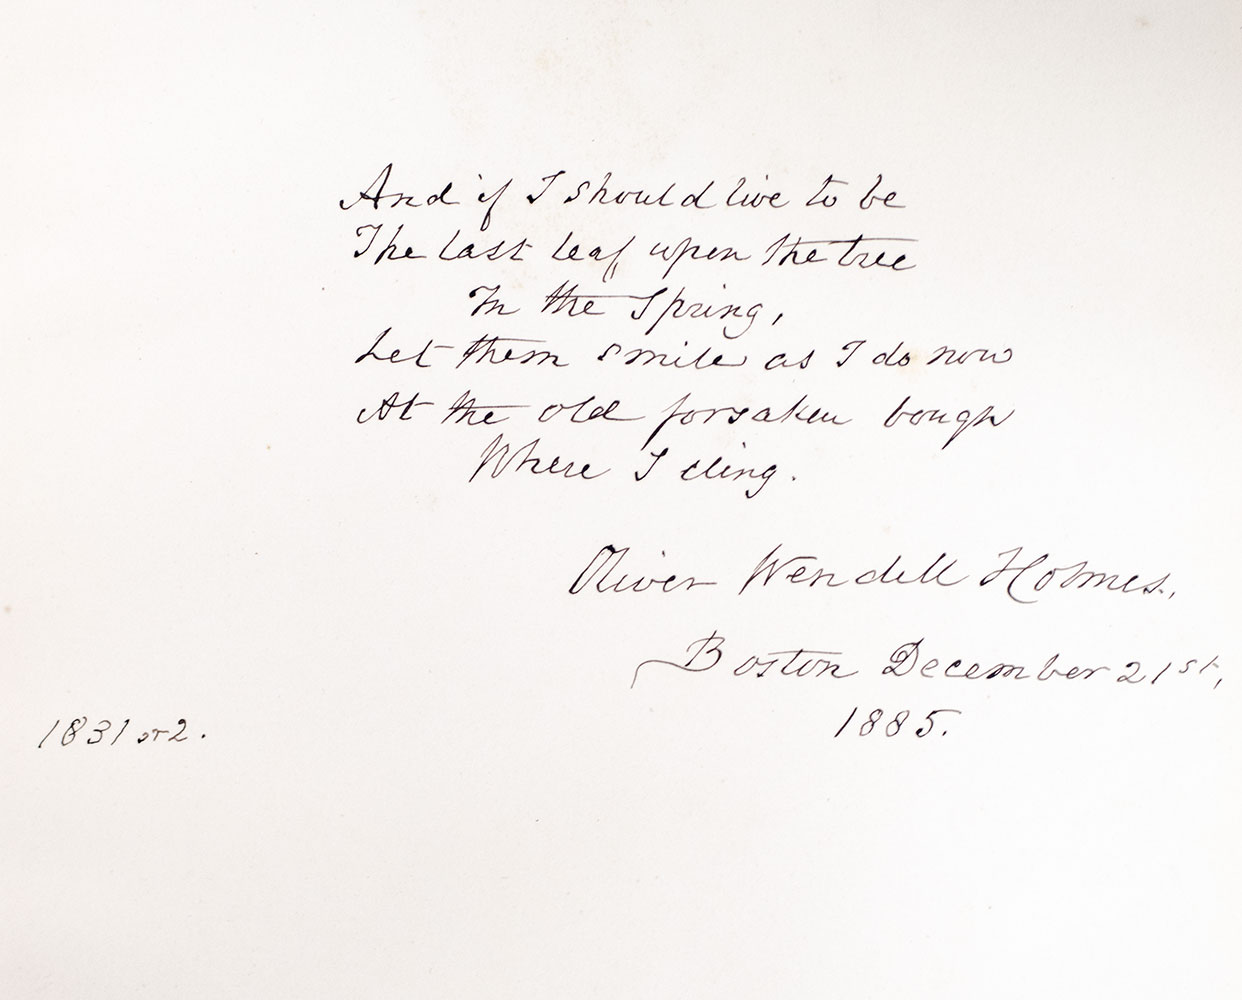 And if I should live to be
The last leaf upon the tree
In the Spring,
Let them smile as I do now
At the old forsaken bough
Where I cling.
Oliver Wendell Holmes.,
Boston December 21st,
1885.
1831 or 2.